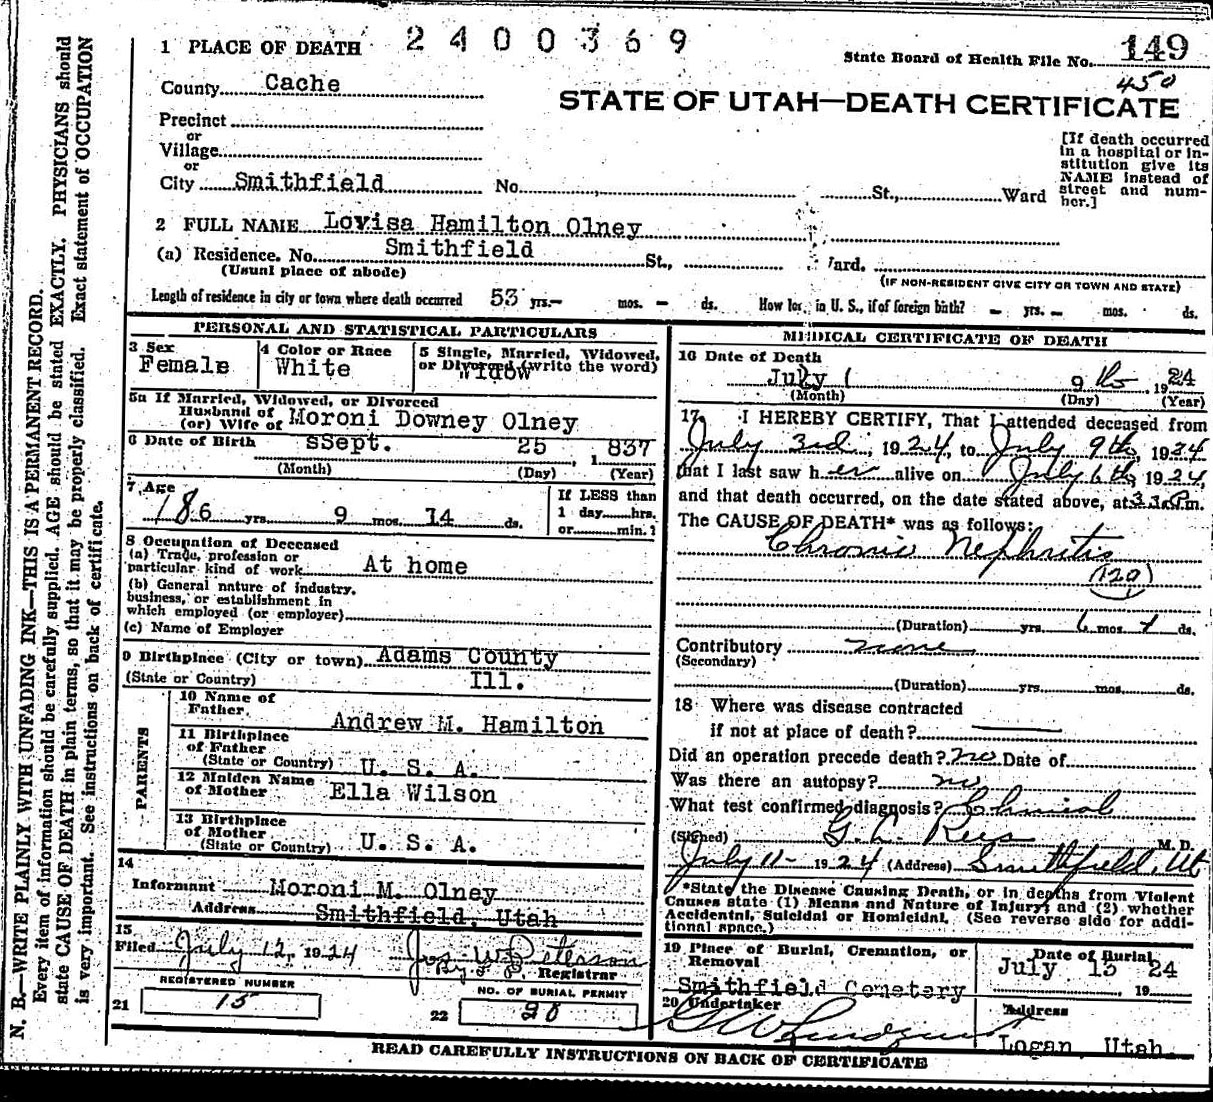 1 PLACE OF DEATH 2400369
State Board of Health File No. 149
450
County Cache
STATE OF UTAH—DEATH CERTIFICATE
Precinct
or
Village
or
City Smithfield No. St., Ward
[If death occurred
in a hospital or in-
stitution give its
NAME instead of
street and num-
ber.]
2 FULL NAME Lovisa Hamilton Olney
(a) Residence. No. Smithfield St., Ward.
(Usual place of abode) (IF NON-RESIDENT GIVE CITY OR TOWN AND STATE)
Length of residence in city or town where death occurred 53 yrs.— mos. — ds. How long in U. S., if of foreign birth? — yrs. — mos. ds.
PERSONAL AND STATISTICAL PARTICULARS
3 Sex
Female
4 Color or Race
White
5 Single, Married, Widowed,
or Divorced (write the word)
Widow
5a If Married, Widowed, or Divorced
Husband of
(or) Wife of Moroni Downey Olney
6 Date of Birth sSept. 25, 1837
(Month) (Day) (Year)
7 Age
86 yrs. 9 mos. 14 ds.
If LESS than
1 day hrs.
or min.?
8 Occupation of Deceased
(a) Trade, profession or
particular kind of work At home
(b) General nature of industry,
business, or establishment in
which employed (or employer)
(c) Name of Employer
9 Birthplace (City or town) Adams County
(State or Country) Ill.
PARENTS
10 Name of
Father Andrew M. Hamilton
11 Birthplace
of Father
(State or Country) U. S. A.
12 Maiden Name
of Mother Ella Wilson
13 Birthplace
of Mother
(State or Country) U. S. A.
14
Informant Moroni M. Olney
Address Smithfield, Utah
15
Filed July 12, 1924 Jos. W. Peterson
By Registrar
REGISTERED NUMBER
21 15
NO. OF BURIAL PERMIT
22 20
MEDICAL CERTIFICATE OF DEATH
16 Date of Death
July 9th 1924
(Month) (Day) (Year)
17 I HEREBY CERTIFY, That I attended deceased from
July 3rd, 1924, to July 9th, 1924
that I last saw her alive on July 6th, 1924,
and that death occurred, on the date stated above, at P.m.
The CAUSE OF DEATH* was as follows:
Chronic Nephritis
(129)
(Duration) yrs. 6 mos. ds.
Contributory none
(Secondary)
(Duration) yrs. mos. ds.
18 Where was disease contracted
if not at place of death?
Did an operation precede death? no Date of
Was there an autopsy? no
What test confirmed diagnosis? Clinical
(Signed) G. L. Rees M. D.
July 11- 1924 (Address) Smithfield, Ut
*State the Disease Causing Death, or in deaths from Violent
Causes state (1) Means and Nature of Injury; and (2) whether
Accidental, Suicidal or Homicidal. (See reverse side for addi-
tional space.)
19 Place of Burial, Cremation, or
Removal
Smithfield Cemetery
Date of Burial
July 13 24
19
20 Undertaker
Address
Logan, Utah
READ CAREFULLY INSTRUCTIONS ON BACK OF CERTIFICATE
N. B.—WRITE PLAINLY WITH UNFADING INK—THIS IS A PERMANENT RECORD.
Every item of information should be carefully supplied. AGE should be stated EXACTLY. PHYSICIANS should
state CAUSE OF DEATH in plain terms, so that it may be properly classified. Exact statement of OCCUPATION
is very important. See instructions on back of certificate.